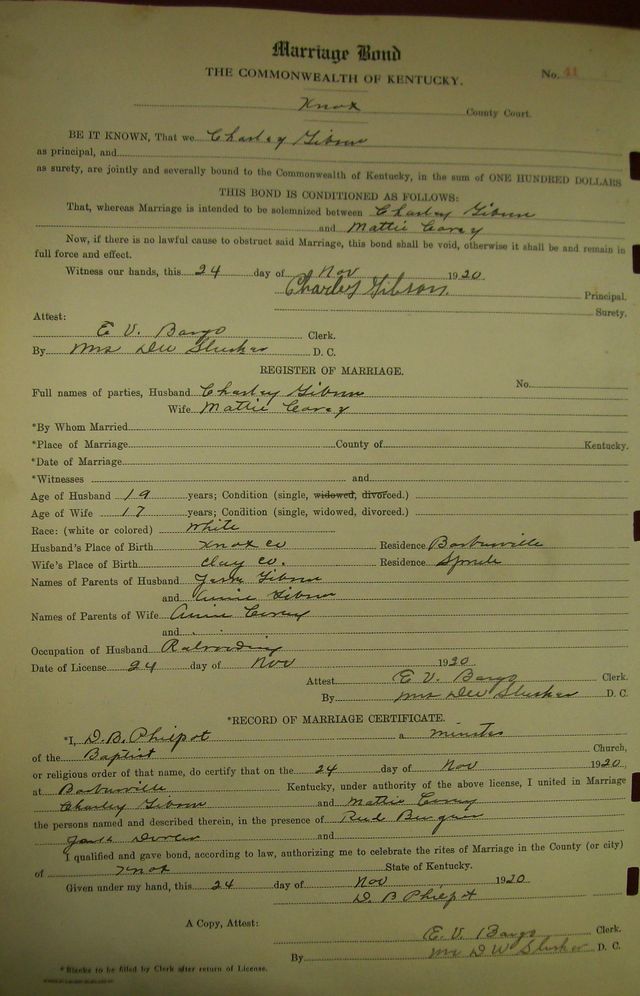 Marriage Bond
THE COMMONWEALTH OF KENTUCKY.
No. 41
Knox County Court.
BE IT KNOWN, That we Charley Gibson
as principal, and
as surety, are jointly and severally bound to the Commonwealth of Kentucky, in the sum of ONE HUNDRED DOLLARS
THIS BOND IS CONDITIONED AS FOLLOWS:
That, whereas Marriage is intended to be solemnized between Charley Gibson
and Mattie Corey
Now, if there is no lawful cause to obstruct said Marriage, this bond shall be void, otherwise it shall be and remain in
full force and effect.
Witness our hands, this 24 day of Nov 1920
Charley Gibson Principal.
Surety.
Attest:
E V. Bargo Clerk.
By Mrs DW Slusher D. C.
REGISTER OF MARRIAGE.
No.
Full names of parties, Husband Charley Gibson
Wife Mattie Corey
*By Whom Married
*Place of Marriage County of Kentucky.
*Date of Marriage
*Witnesses and
Age of Husband 19 years; Condition (single, widowed, divorced.)
Age of Wife 17 years; Condition (single, widowed, divorced.)
Race: (white or colored) White
Husband's Place of Birth Knox Co Residence Barbourville
Wife's Place of Birth Clay Co. Residence
Names of Parents of Husband Gibson
and Annie Gibson
Names of Parents of Wife Annie Corey
and
Occupation of Husband Railroading
Date of License 24 day of Nov 1920
Attest E V. Bargo Clerk.
By Mrs DW Slusher D. C.
*RECORD OF MARRIAGE CERTIFICATE.
*I, D. B. Philpot a minister
of the Baptist Church,
or religious order of that name, do certify that on the 24 day of Nov 1920,
at Barbourville Kentucky, under authority of the above license, I united in Marriage
Charley Gibson and Mattie Corey
the persons named and described therein, in the presence of
and
I qualified and gave bond, according to law, authorizing me to celebrate the rites of Marriage in the County (or city)
of Knox State of Kentucky.
Given under my hand, this 24 day of Nov 1920
D. B Philpot
A Copy, Attest:
E. V. Bargo Clerk.
By Mrs DW Slusher D. C.
*Blanks to be filled by Clerk after return of License.